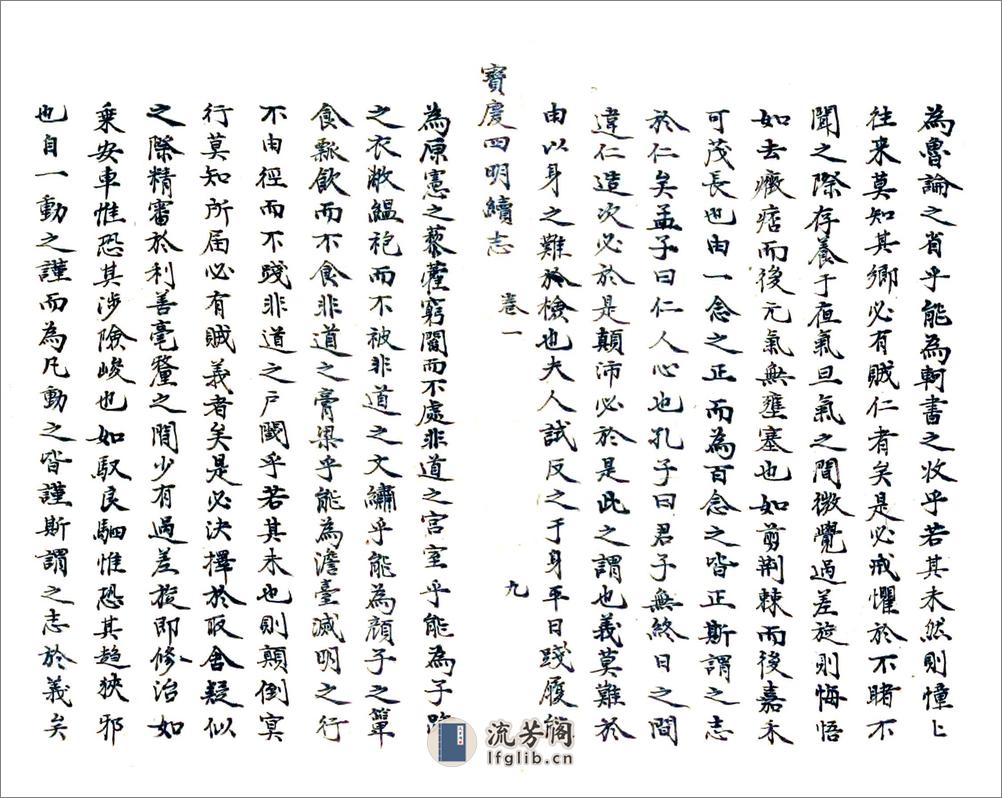 為魯論之省乎能為軻書之收乎若其未然則憧〻
往来莫知其鄉必有賊仁者矣是必戒懼於不睹不
聞之際存養于夜氣旦氣之間微覺過差旋則悔悟
如去癥痞而後元氣無壅塞也如剪荆棘而後嘉禾
可茂長也由一念之正而為百念之皆正斯謂之志
於仁矣孟子曰仁人心也孔子曰君子無終日之間
違仁造次必於是顛沛必於是此之謂也義莫難於
由以身之難於檢也夫人試反之于身平日踐履
寶慶四明續志 卷一 九
為原憲之藜藿窮閻而不處非道之宮室乎能為子路
之衣敝縕袍而不被非道之文繡乎能為顏子之簞
食瓢飲而不食非道之膏粱乎能為澹臺滅明之行
不由徑而不踐非道之户閾乎若其未也則顛倒冥
行莫知所届必有賊義者矣是必決擇於取舍疑似
之際精審於利善毫釐之間少有過差旋即修治如
乗安車惟恐其涉險峻也如馭良駟惟恐其趋狹邪
也自一動之謹而為凡動之皆謹斯謂之志於義矣
流芳阁
lfglib.cn